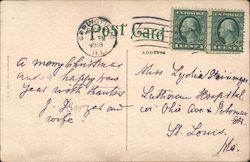 Post Card
SPRINGFIELD
ILL.
ADDRESS
A merry Christmas
and a happy new
year with thanks
J. and
wife.
Miss Lydia
Lutheran Hospital
cor Ohio Ave & Potomac
St. Louis,
Mo.